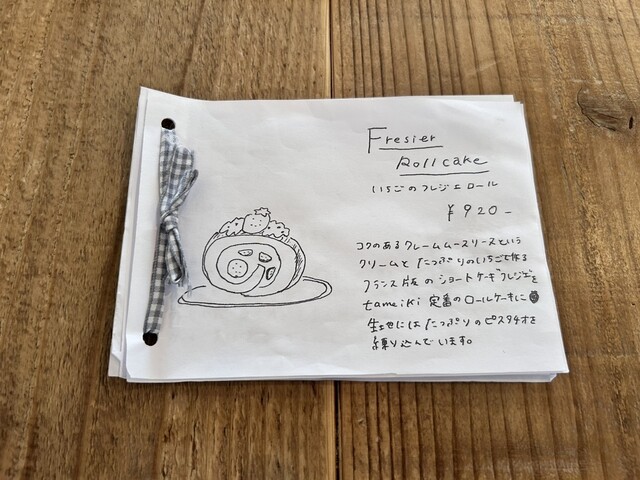 Fresier
Roll cake
いちごのフレジエロール
¥920-
コクのあるクレームムースリーヌという
クリームとたっぷりのいちごで作る
フランス版のショートケーキ"フレジエ"を
tameiki 定番のロールケーキに
生地にはたっぷりのピスタチオを
練り込んでいます。